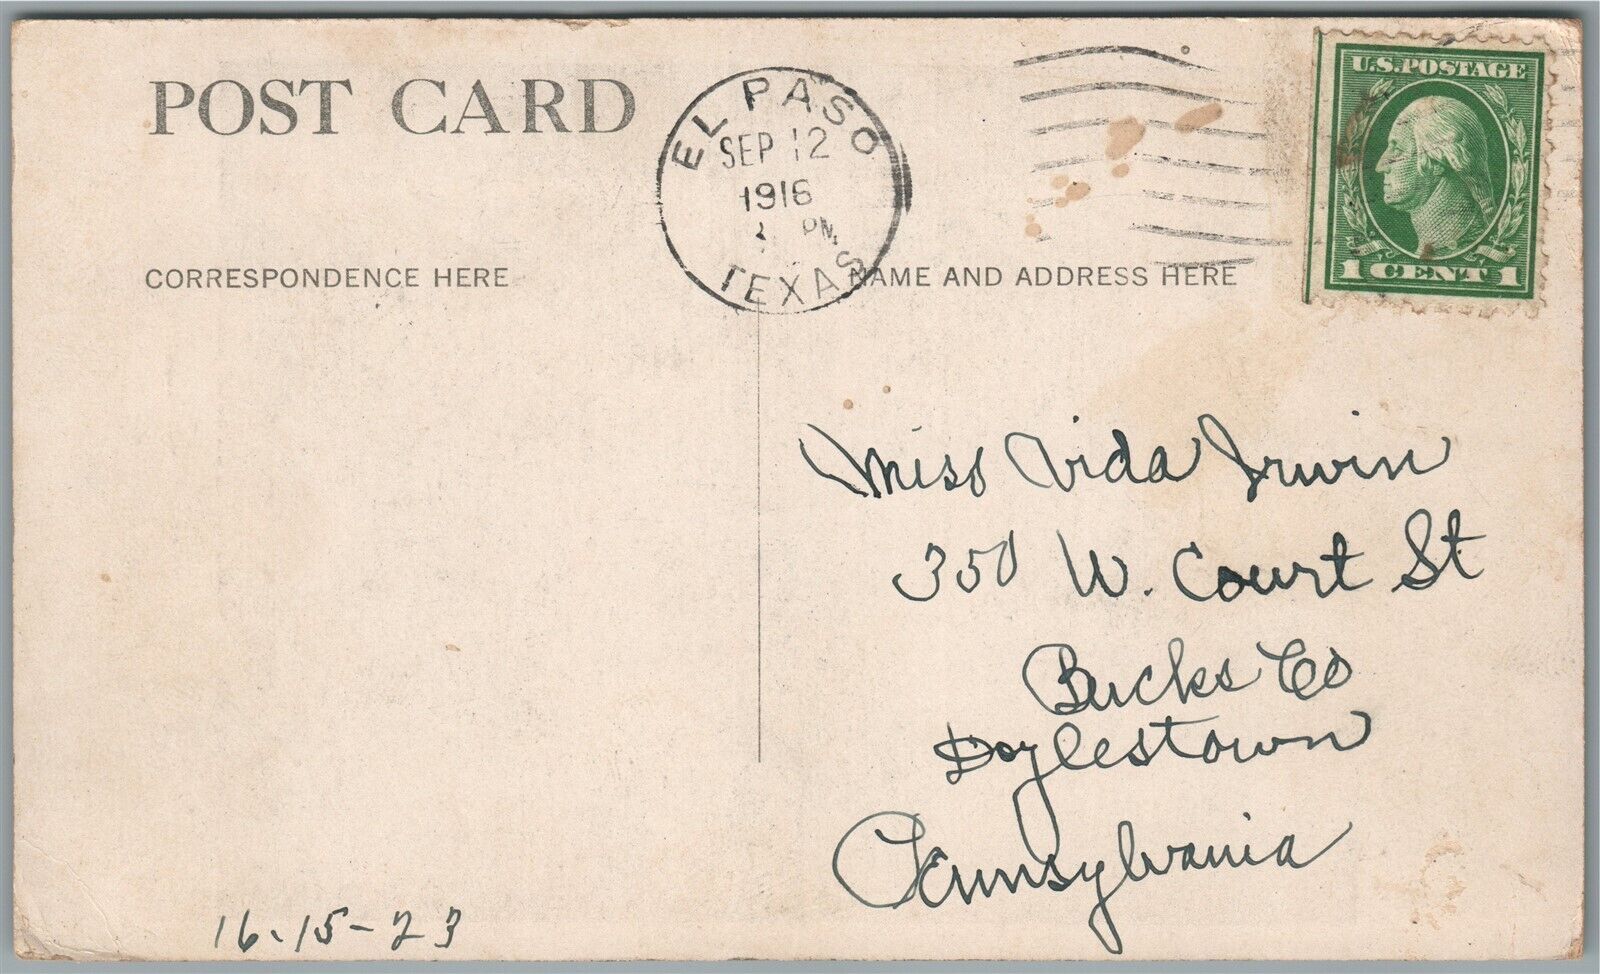 POST CARD
EL PASO
SEP 12
1916
PM
TEXAS
U.S. POSTAGE
1 CENT 1
CORRESPONDENCE HERE
NAME AND ADDRESS HERE
Miss Vida Irwin
350 W. Court St
Bucks Co
Doylestown
Pennsylvania
16-15-23